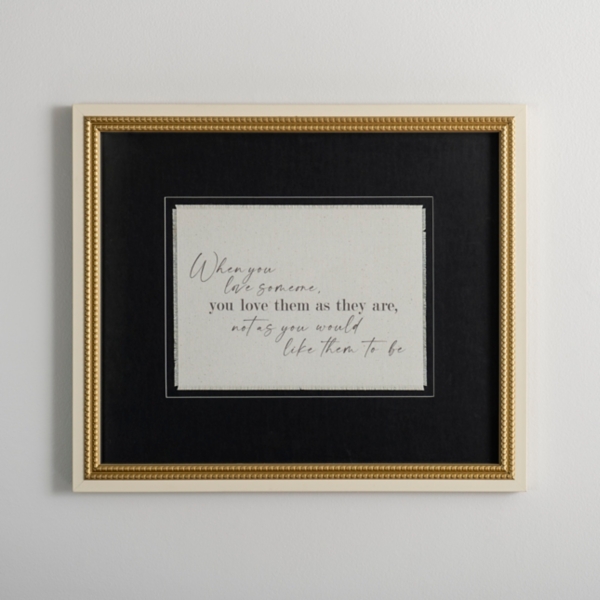 When you
love someone,
you love them as they are,
not as you would
like them to be